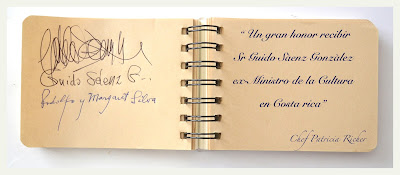 Guido Sáenz G.
Rodolfo y Margaret Silva
“ Un gran honor recibir
Sr Guido Sàenz Gonzàlez
ex-Ministro de la Cultura
en Costa rica”
Chef Patricia Richer